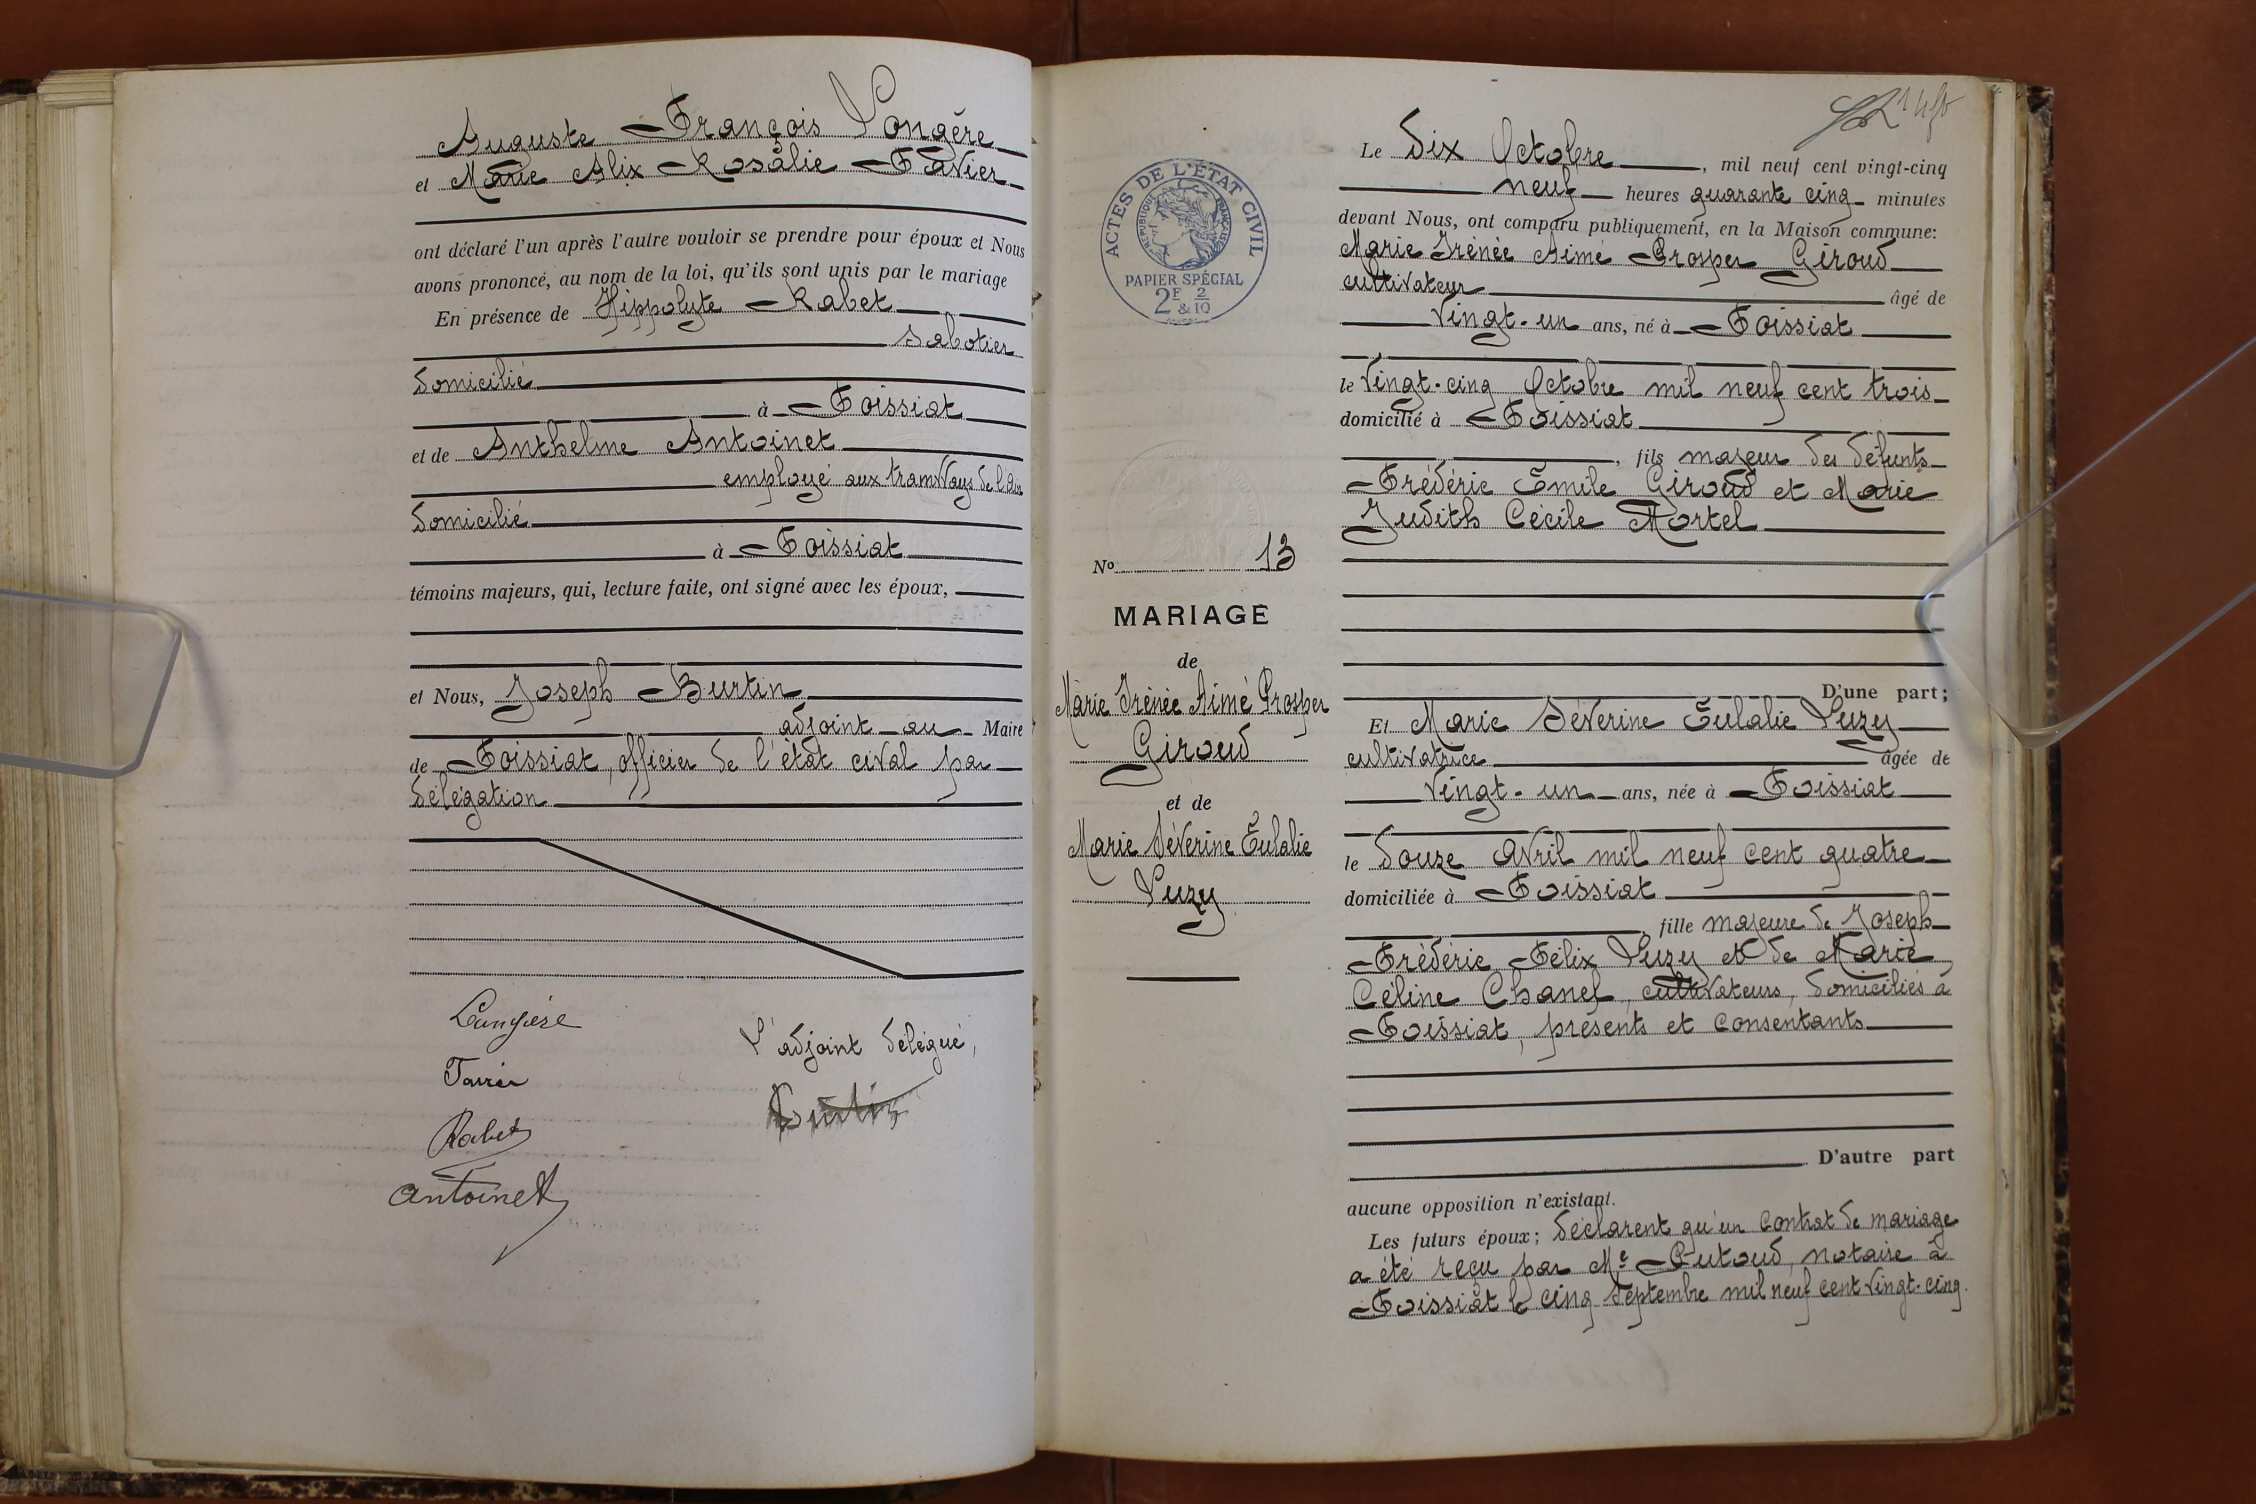 Auguste François Longère
et Marie Alix Rosalie Favier
ont déclaré l'un après l'autre vouloir se prendre pour époux et Nous
avons prononcé, au nom de la loi, qu'ils sont unis par le mariage
En présence de Hippolyte Rabet
sabotier
domicilié
à Foissiat
et de Anthelme Antoinet
employé aux tramways de l'Ain
domicilié
à Foissiat
témoins majeurs, qui, lecture faite, ont signé avec les époux,
et Nous, Joseph Burtin
adjoint au Maire
de Foissiat, officier de l'état civil par
délégation
Longère
Favier
Rabet
Antoinet
L'adjoint délégué,
Burtin
ACTES DE L'ÉTAT CIVIL
RÉPUBLIQUE FRANÇAISE
PAPIER SPÉCIAL
2F & 2/10
No 13
MARIAGE
de
Marie Irénée Aimé Prosper
Giroud
et de
Marie Séverine Eulalie
Luzy
Le dix Octobre, mil neuf cent vingt-cinq
neuf heures quarante cinq minutes
devant Nous, ont comparu publiquement, en la Maison commune:
Marie Irénée Aimé Prosper Giroud
cultivateur âgé de
vingt-un ans, né à Foissiat
le vingt-cinq Octobre mil neuf cent trois
domicilié à Foissiat
, fils majeur des défunts
Frédéric Emile Giroud et Marie
Judith Cécile Mortel
D'une part;
Et Marie Séverine Eulalie Luzy
cultivatrice âgée de
vingt-un ans, née à Foissiat
le douze avril mil neuf cent quatre
domiciliée à Foissiat
, fille majeure de Joseph
Frédéric Félix Luzy et de Marie
Céline Chanel, cultivateurs, domiciliés à
Foissiat, présents et consentants
D'autre part
aucune opposition n'existant.
Les futurs époux; déclarent qu'un contrat de mariage
a été reçu par Me Putoud, notaire à
Foissiat le cinq Septembre mil neuf cent vingt-cinq.